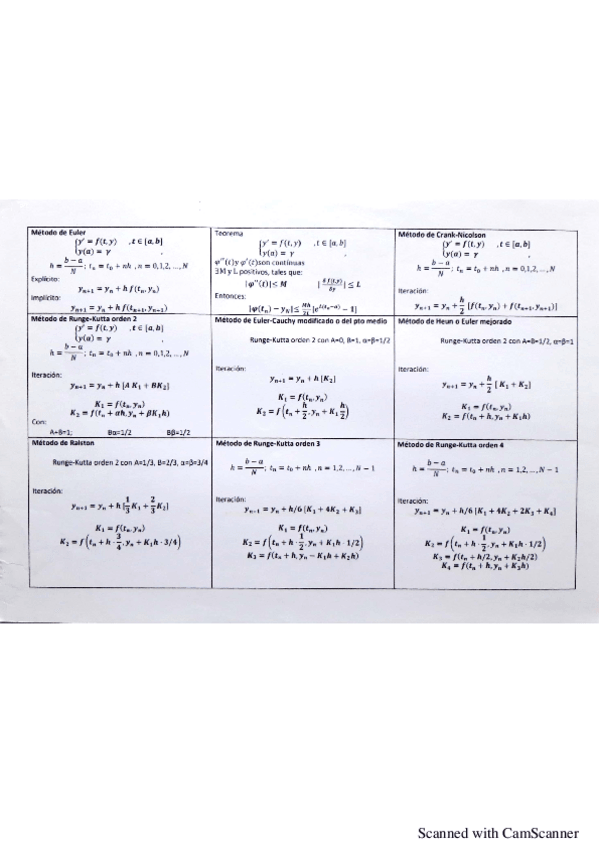 Método de Euler
{y' = f(t,y) , t ∈ [a,b]
{y(a) = γ ,
h = b − a / N ; tₙ = t₀ + nh , n = 0,1,2, …, N
Explícito:
yₙ₊₁ = yₙ + h f(tₙ, yₙ)
Implícito:
yₙ₊₁ = yₙ + h f(tₙ₊₁, yₙ₊₁)
Teorema
{y' = f(t,y) , t ∈ [a,b]
{y(a) = γ ,
φ''(t)y φ'(t)son continuas
∃M y L positivos, tales que:
|φ''(t)| ≤ M | δ f(t,y) / δy | ≤ L
Entonces:
|φ(tₙ) − yₙ| ≤ Mh/2L |e^L(tₙ−a) − 1|
Método de Crank-Nicolson
{y' = f(t,y) , t ∈ [a,b]
{y(a) = γ ,
h = b − a / N ; tₙ = t₀ + nh , n = 0,1,2, …, N
Iteración:
yₙ₊₁ = yₙ + h/2 [f(tₙ, yₙ) + f(tₙ₊₁, yₙ₊₁)]
Método de Runge-Kutta orden 2
{y' = f(t,y) , t ∈ [a,b]
{y(a) = γ ,
h = b − a / N ; tₙ = t₀ + nh , n = 0,1,2, …, N
Iteración:
yₙ₊₁ = yₙ + h [A K₁ + BK₂]
K₁ = f(tₙ, yₙ)
K₂ = f(tₙ + αh, yₙ + βK₁h)
Con:
A+B=1; Bα=1/2 Bβ=1/2
Método de Euler-Cauchy modificado o del pto medio
Runge-Kutta orden 2 con A=0, B=1, α=β=1/2
Iteración:
yₙ₊₁ = yₙ + h [K₂]
K₁ = f(tₙ, yₙ)
K₂ = f(tₙ + h/2, yₙ + K₁ h/2)
Método de Heun o Euler mejorado
Runge-Kutta orden 2 con A=B=1/2, α=β=1
Iteración:
yₙ₊₁ = yₙ + h/2 [ K₁ + K₂]
K₁ = f(tₙ, yₙ)
K₂ = f(tₙ + h, yₙ + K₁h)
Método de Ralston
Runge-Kutta orden 2 con A=1/3, B=2/3, α=β=3/4
Iteración:
yₙ₊₁ = yₙ + h [1/3 K₁ + 2/3 K₂]
K₁ = f(tₙ, yₙ)
K₂ = f(tₙ + h · 3/4, yₙ + K₁h · 3/4)
Método de Runge-Kutta orden 3
h = b − a / N ; tₙ = t₀ + nh , n = 1,2, …, N − 1
Iteración:
yₙ₊₁ = yₙ + h/6 [K₁ + 4K₂ + K₃]
K₁ = f(tₙ, yₙ)
K₂ = f(tₙ + h · 1/2, yₙ + K₁h · 1/2)
K₃ = f(tₙ + h, yₙ − K₁h + K₂h)
Método de Runge-Kutta orden 4
h = b − a / N ; tₙ = t₀ + nh , n = 1,2, …, N − 1
Iteración:
yₙ₊₁ = yₙ + h/6 [K₁ + 4K₂ + 2K₃ + K₄]
K₁ = f(tₙ, yₙ)
K₂ = f(tₙ + h · 1/2, yₙ + K₁h · 1/2)
K₃ = f(tₙ + h/2, yₙ + K₂h/2)
K₄ = f(tₙ + h, yₙ + K₃h)
Scanned with CamScanner